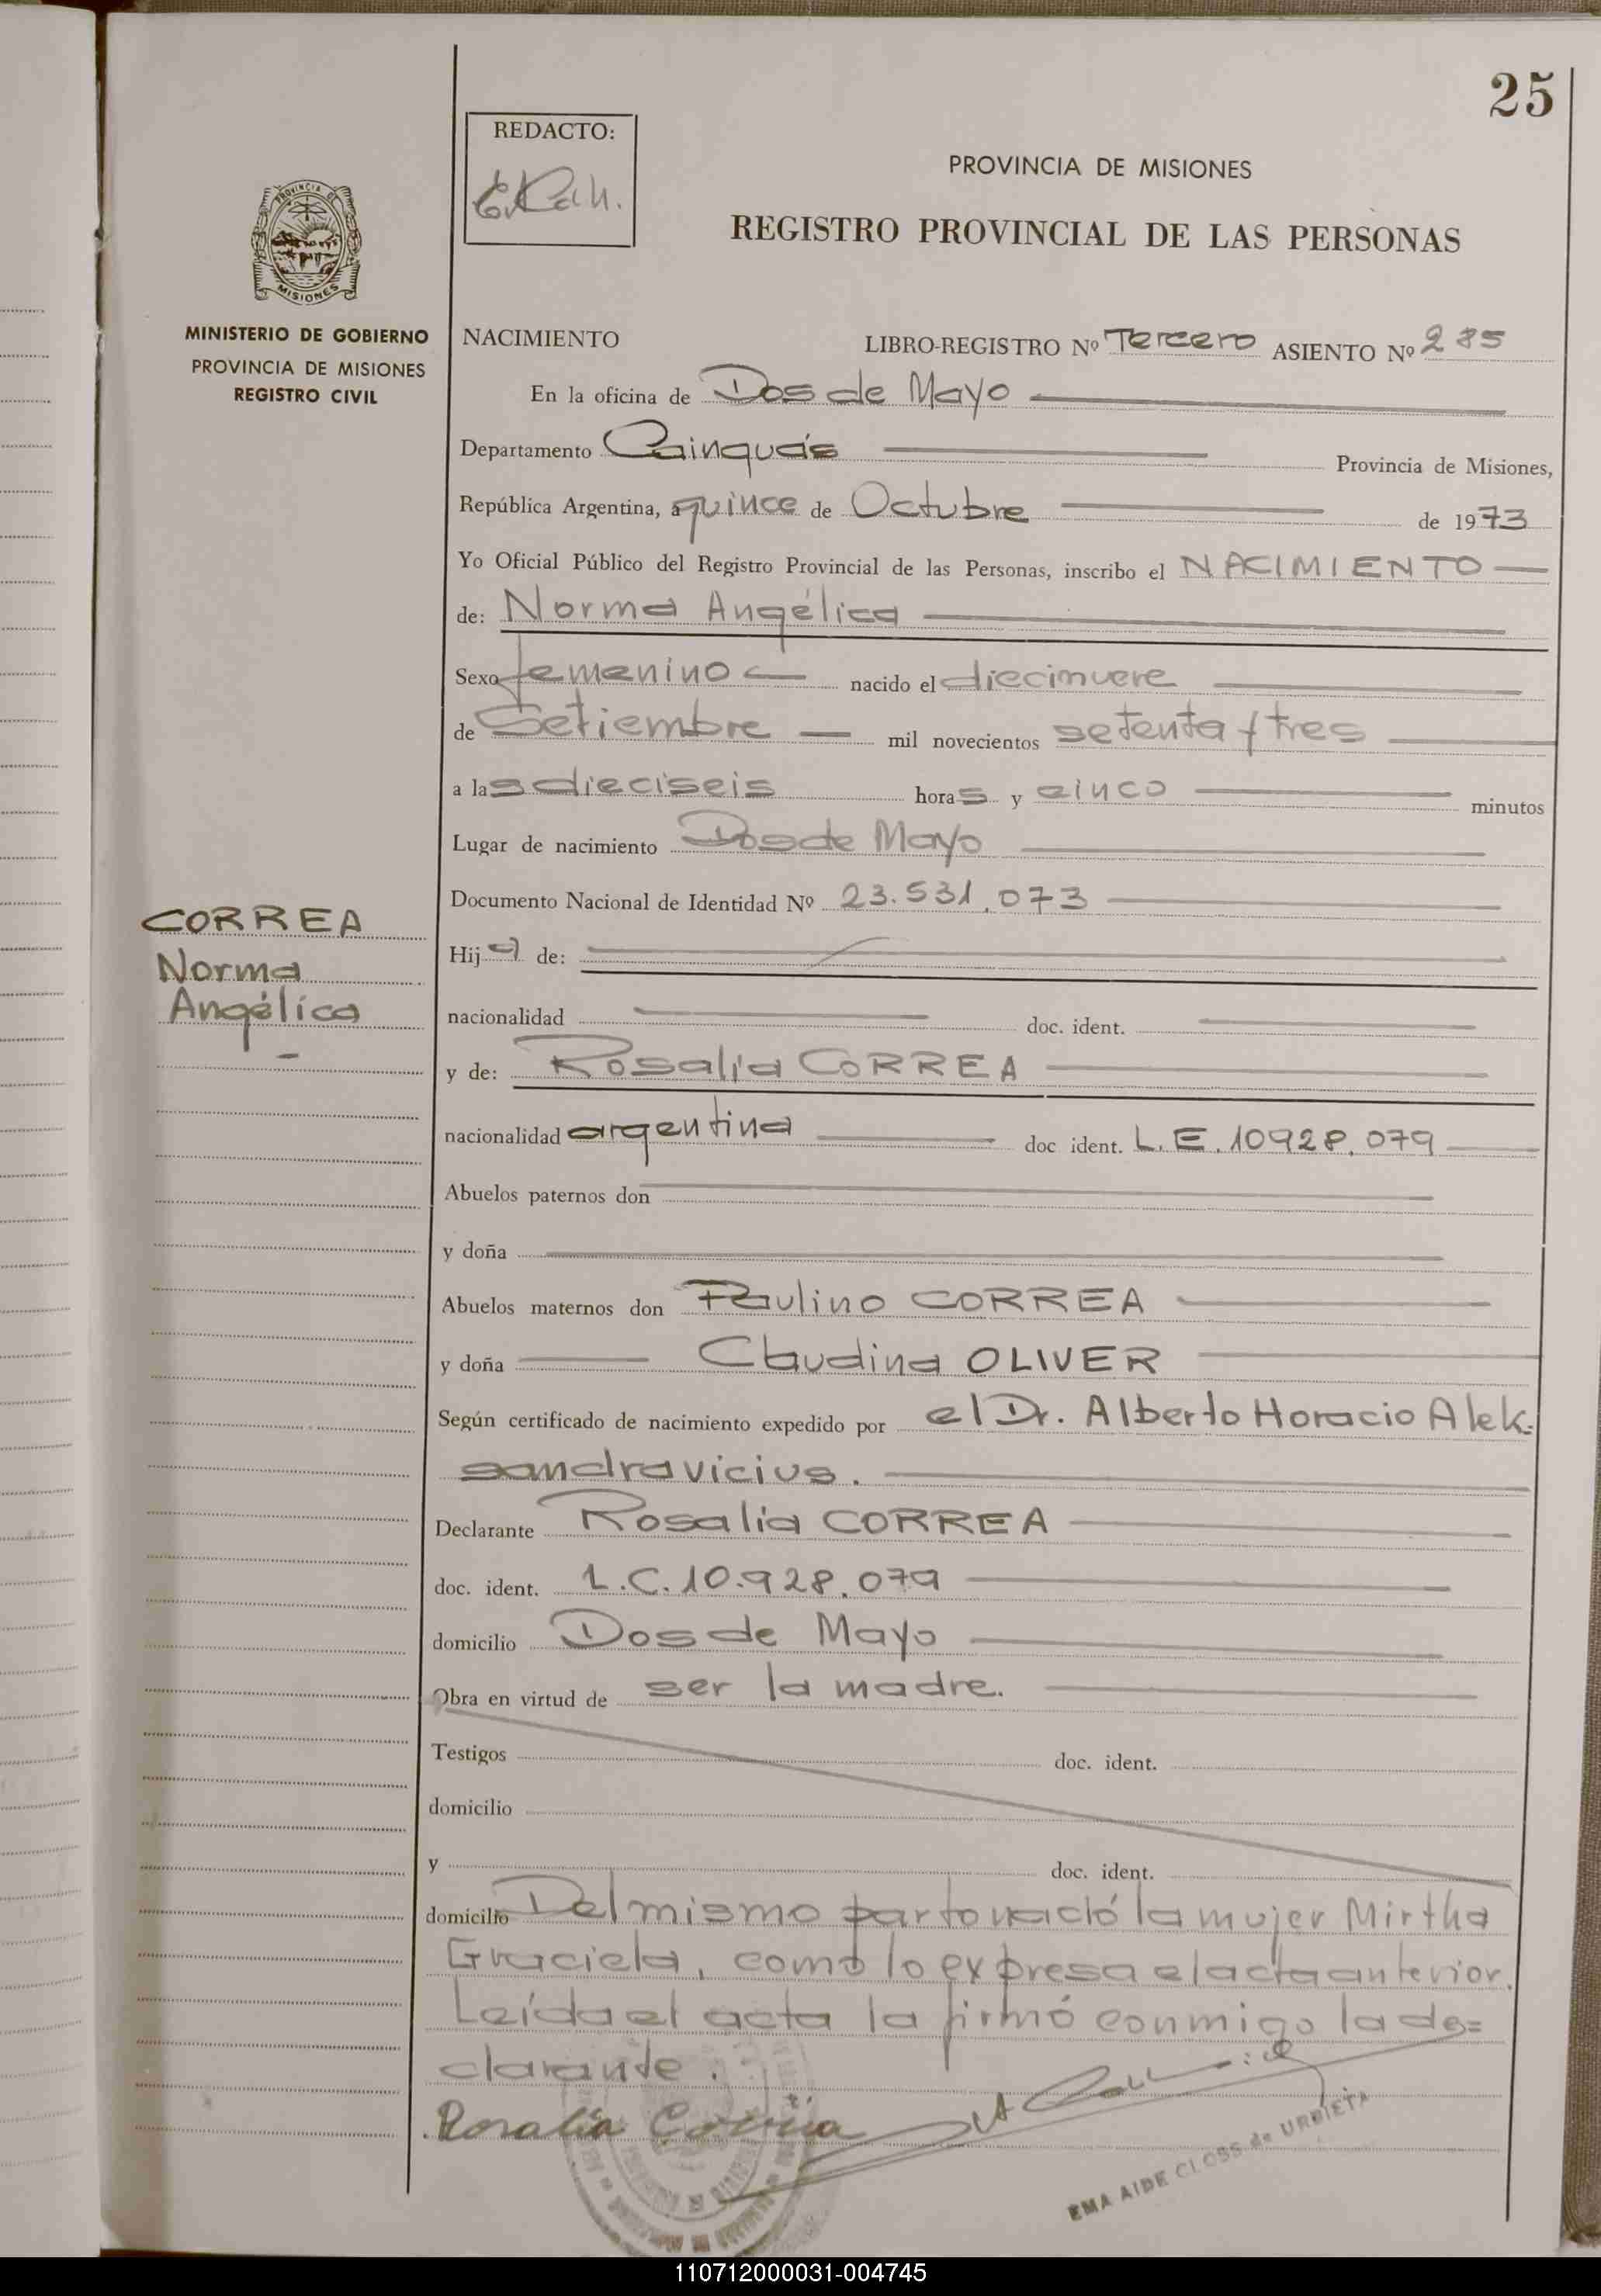 25
REDACTO:
PROVINCIA DE MISIONES
REGISTRO PROVINCIAL DE LAS PERSONAS
PROVINCIA DE
MISIONES
MINISTERIO DE GOBIERNO
PROVINCIA DE MISIONES
REGISTRO CIVIL
NACIMIENTO LIBRO-REGISTRO Nº Tercero ASIENTO Nº 285
En la oficina de Dos de Mayo
Departamento Cainguás Provincia de Misiones,
República Argentina, a quince de Octubre de 1973
Yo Oficial Público del Registro Provincial de las Personas, inscribo el NACIMIENTO
de: Norma Angélica
Sexo femenino nacido el diecinueve
de Setiembre mil novecientos setenta y tres
a las dieciseis horas y cinco minutos
Lugar de nacimiento Dos de Mayo
Documento Nacional de Identidad Nº 23.531.073
CORREA
Norma
Angélica
Hija de:
nacionalidad doc. ident.
y de: Rosalia CORREA
nacionalidad argentina doc ident. L.E. 10928.079
Abuelos paternos don
y doña
Abuelos maternos don Paulino CORREA
y doña Claudina OLIVER
Según certificado de nacimiento expedido por el Dr. Alberto Horacio Alek-
sandravicius.
Declarante Rosalia CORREA
doc. ident. L.C. 10.928.079
domicilio Dos de Mayo
Obra en virtud de ser la madre.
Testigos doc. ident.
domicilio
y doc. ident.
domicilio Del mismo parto nació la mujer Mirtha
Graciela, como lo expresa el acta anterior.
Leída el acta la firmó conmigo la de=
clarante.
Rosalia Correa
EMA AIDE CLOSS de URBIETA
110712000031-004745